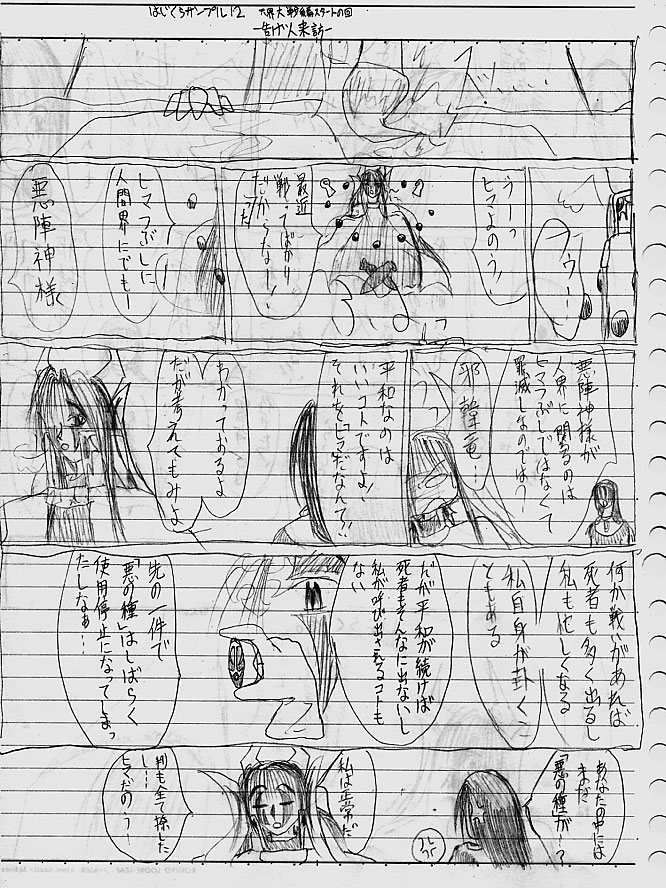 はじくらサンプル12
大界大戦後編スタートの回
―告げ人来訪―
ズッ……
フゥー
うーっ
ヒマよのう！
最近
戦ってばかり
だったからなー！
ヒマつぶしに
人間界にでもー
悪陣神様
悪陣神様が
人界に関るのは
ヒマつぶしではなくて
罪滅しなのでは？
邪韓竜…
うっ
平和なのは
いいコトですよ！
それをヒマだなんて！
わかっておるよ
だが考えてもみよ
何か戦いがあれば
死者も多く出るし
私も忙しくなる
私自身が赴くこ
ともある
だが平和が続けば
死者もそんなに出ないし
私が呼び出されるコトも
ない
先の一件で
「悪の種」はしばらく
使用停止になってしまっ
たしなぁ…
あなたの中には
まだ
「悪の種」が…？
私は正常だ
判も全て捺した
し…
ヒマだのう…